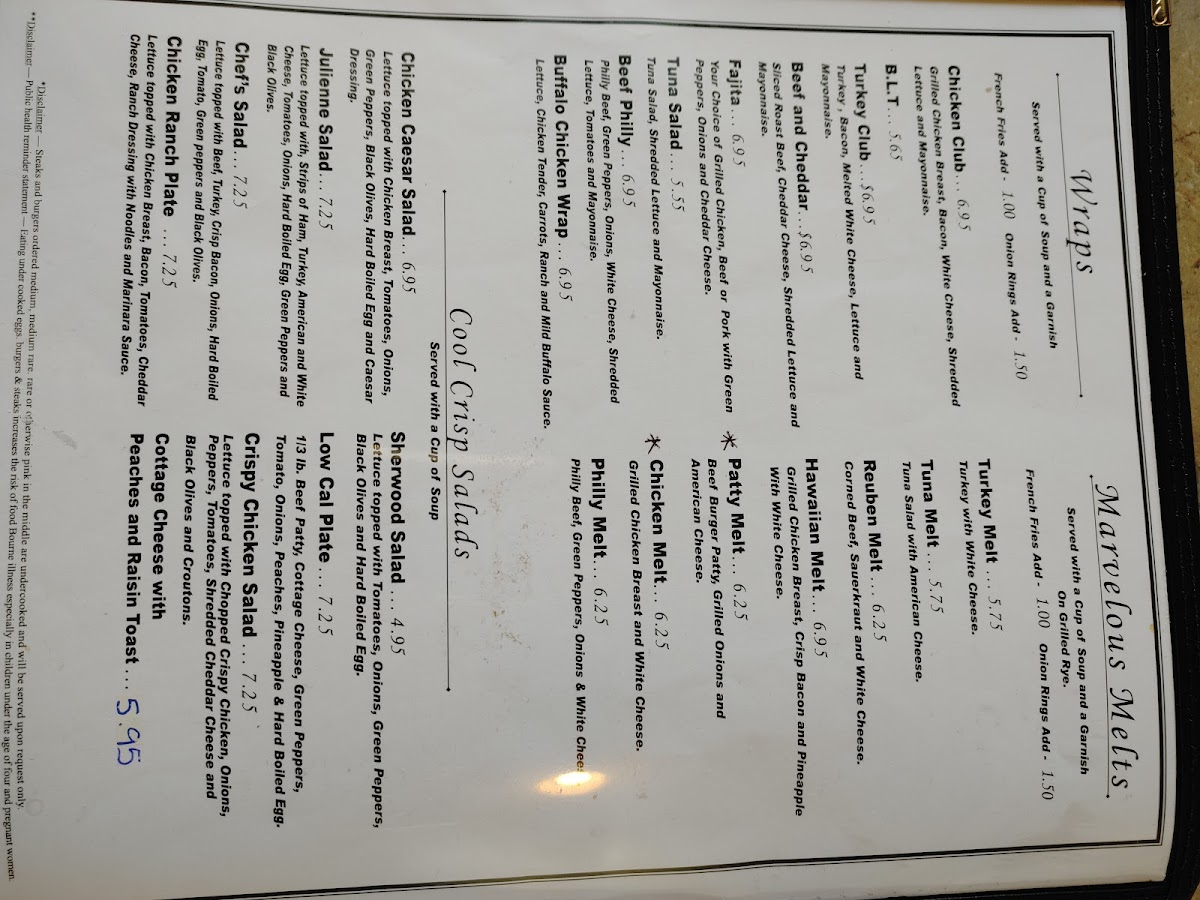 Wraps
Served with a Cup of Soup and a Garnish
French Fries Add - 1.00 Onion Rings Add - 1.50
Chicken Club... 6.95
Grilled Chicken Breast, Bacon, White Cheese, Shredded
Lettuce and Mayonnaise.
B.L.T... 5.65
Turkey Club...$6.95
Turkey, Bacon, Melted White Cheese, Lettuce and
Mayonnaise.
Beef and Cheddar...$6.95
Sliced Roast Beef, Cheddar Cheese, Shredded Lettuce and
Mayonnaise.
Fajita... 6.95
Your Choice of Grilled Chicken, Beef or Pork with Green
Peppers, Onions and Cheddar Cheese.
Tuna Salad... 5.55
Tuna Salad, Shredded Lettuce and Mayonnaise.
Beef Philly... 6.95
Philly Beef, Green Peppers, Onions, White Cheese, Shredded
Lettuce, Tomatoes and Mayonnaise.
Buffalo Chicken Wrap... 6.95
Lettuce, Chicken Tender, Carrots, Ranch and Mild Buffalo Sauce.
Marvelous Melts
Served with a Cup of Soup and a Garnish
On Grilled Rye.
French Fries Add - 1.00 Onion Rings Add - 1.50
Turkey Melt .... 5.75
Turkey with White Cheese.
Tuna Melt... 5.75
Tuna Salad with American Cheese.
Reuben Melt... 6.25
Corned Beef, Sauerkraut and White Cheese.
Hawaiian Melt... 6.95
Grilled Chicken Breast, Crisp Bacon and Pineapple
With White Cheese.
* Patty Melt... 6.25
Beef Burger Patty, Grilled Onions and
American Cheese.
* Chicken Melt... 6.25
Grilled Chicken Breast and White Cheese.
Philly Melt... 6.25
Philly Beef, Green Peppers, Onions & White Cheese
Cool Crisp Salads
Served with a Cup of Soup
Chicken Caesar Salad... 6.95
Lettuce topped with Chicken Breast, Tomatoes, Onions,
Green Peppers, Black Olives, Hard Boiled Egg and Caesar
Dressing.
Julienne Salad... 7.25
Lettuce topped with, Strips of Ham, Turkey, American and White
Cheese, Tomatoes, Onions, Hard Boiled Egg, Green Peppers and
Black Olives.
Chef's Salad... 7.25
Lettuce topped with Beef, Turkey, Crisp Bacon, Onions, Hard Boiled
Egg, Tomato, Green peppers and Black Olives.
Chicken Ranch Plate ... 7.25
Lettuce topped with Chicken Breast, Bacon, Tomatoes, Cheddar
Cheese, Ranch Dressing with Noodles and Marinara Sauce.
Sherwood Salad ... 4.95
Lettuce topped with Tomatoes, Onions, Green Peppers,
Black Olives and Hard Boiled Egg.
Low Cal Plate... 7.25
1/3 lb. Beef Patty, Cottage Cheese, Green Peppers,
Tomato, Onions, Peaches, Pineapple & Hard Boiled Egg.
Crispy Chicken Salad... 7.25
Lettuce topped with Chopped Crispy Chicken, Onions,
Peppers, Tomatoes, Shredded Cheddar Cheese and
Black Olives and Croutons.
Cottage Cheese with
Peaches and Raisin Toast... 5.95
*Disclaimer — Steaks and burgers ordered medium, medium rare, rare or otherwise pink in the middle are undercooked and will be served upon request only.
**Disclaimer — Public health reminder statement — Eating under cooked eggs, burgers & steaks increases the risk of food Bourne illness especially in children under the age of four and pregnant women.